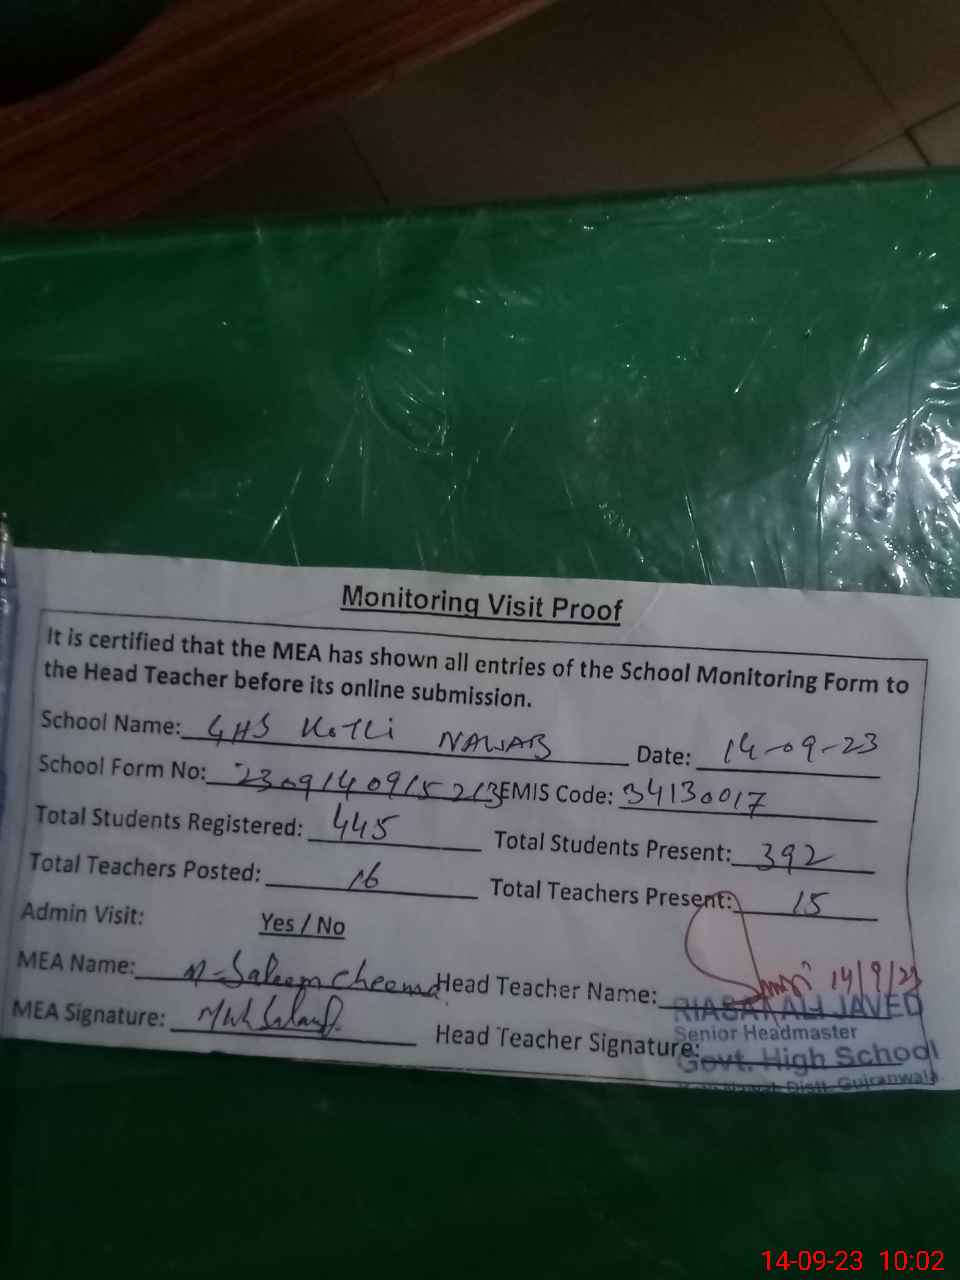 Monitoring Visit Proof
It is certified that the MEA has shown all entries of the School Monitoring Form to
the Head Teacher before its online submission.
School Name: GHS Kotli NAWAB Date: 14-09-23
School Form No: 2309140915213 EMIS Code: 34130017
Total Students Registered: 445 Total Students Present: 392
Total Teachers Posted: 16 Total Teachers Present: 15
Admin Visit: Yes / No
MEA Name: M-Saleem Cheema Head Teacher Name: 14/9/23
RIASAT ALI JAVED
Senior Headmaster
MEA Signature: Head Teacher Signature:
Govt. High School
Distt. Gujranwala
14-09-23 10:02